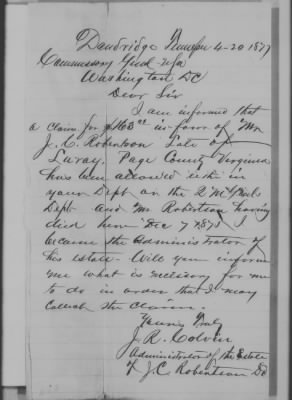 Dandridge Tennessee 4-20 1877
Commissary Genl USA
Washington DC
Dear Sir
I am informed that
a claim for $163 in favor of Mr
J. C. Robertson Late of
Luray, Page County Virginia
has been allowed either in
your Dept or the Q M Genls
Dept and Mr Robertson having
died here Dec 7 187 I
became the Administrator of
his estate. Will you inform
me what is necessary for me
to do in order that I may
Collect the claim.
Yours Truly
J. R. Colvin
Administrator of the Estate
of J. C. Robertson Dd